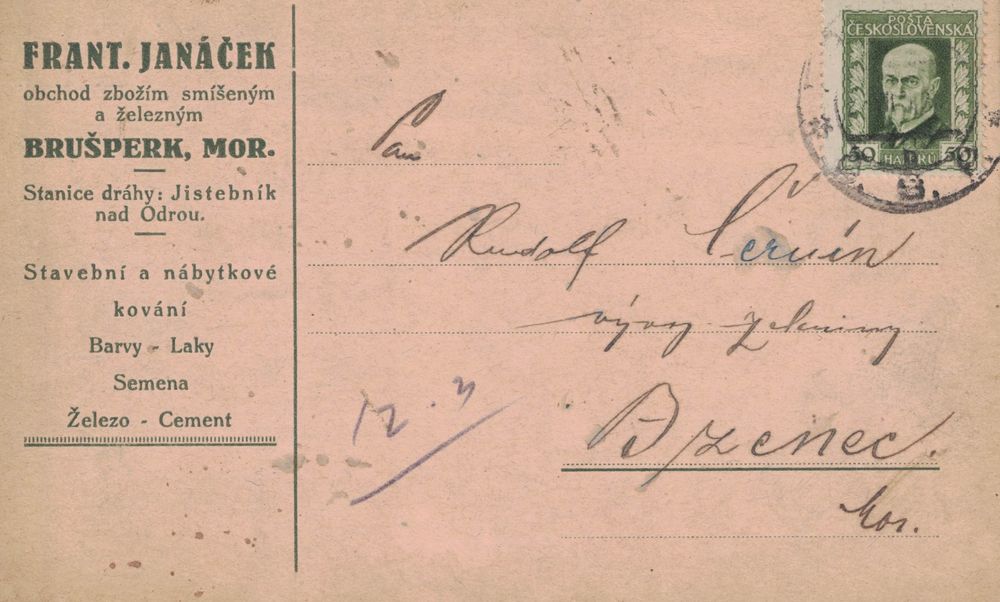 FRANT. JANÁČEK
obchod zbožím smíšeným
a železným
BRUŠPERK, MOR.
Stanice dráhy: Jistebník
nad Odrou.
Stavební a nábytkové
kování
Barvy - Laky
Semena
Železo - Cement
POŠTA
ČESKOSLOVENSKÁ
50 HALÉŘŮ 50
Pan
Rudolf Červín
vývoz zeleniny
Bzenec.
Mor.
12.3